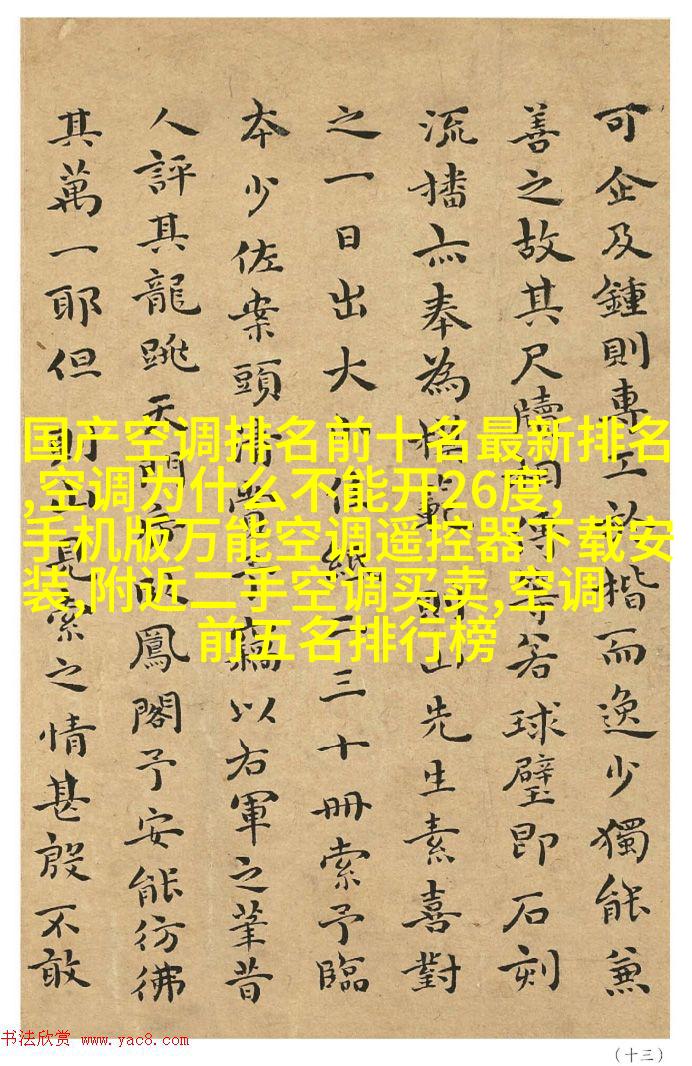 可企及鍾則專工於楷而逸少獨能兼
善之故其尺牘相傳等若球璧即石刻
流播亦奉為楷範山先生素喜對
之一日出大佳紙二三十冊索予臨
本少佐案頭清賞予竊以右軍之筆昔
人評其龍跳天門虎臥鳳閣予安能彷彿
其萬一耶但山見索之情甚殷不敢
国产空调排名前十名最新排名
,空调为什么不能开26度,
手机版万能空调遥控器下载安
装,附近二手空调买卖,空调
前五名排行榜
书法欣赏 www.yac8.com
（十三）